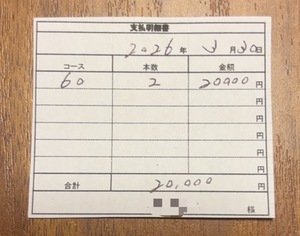 支払明細書
2026年 3月30日
コース 本数 金額
60 2 20000円
円
円
円
円
円
合計 20,000円
様